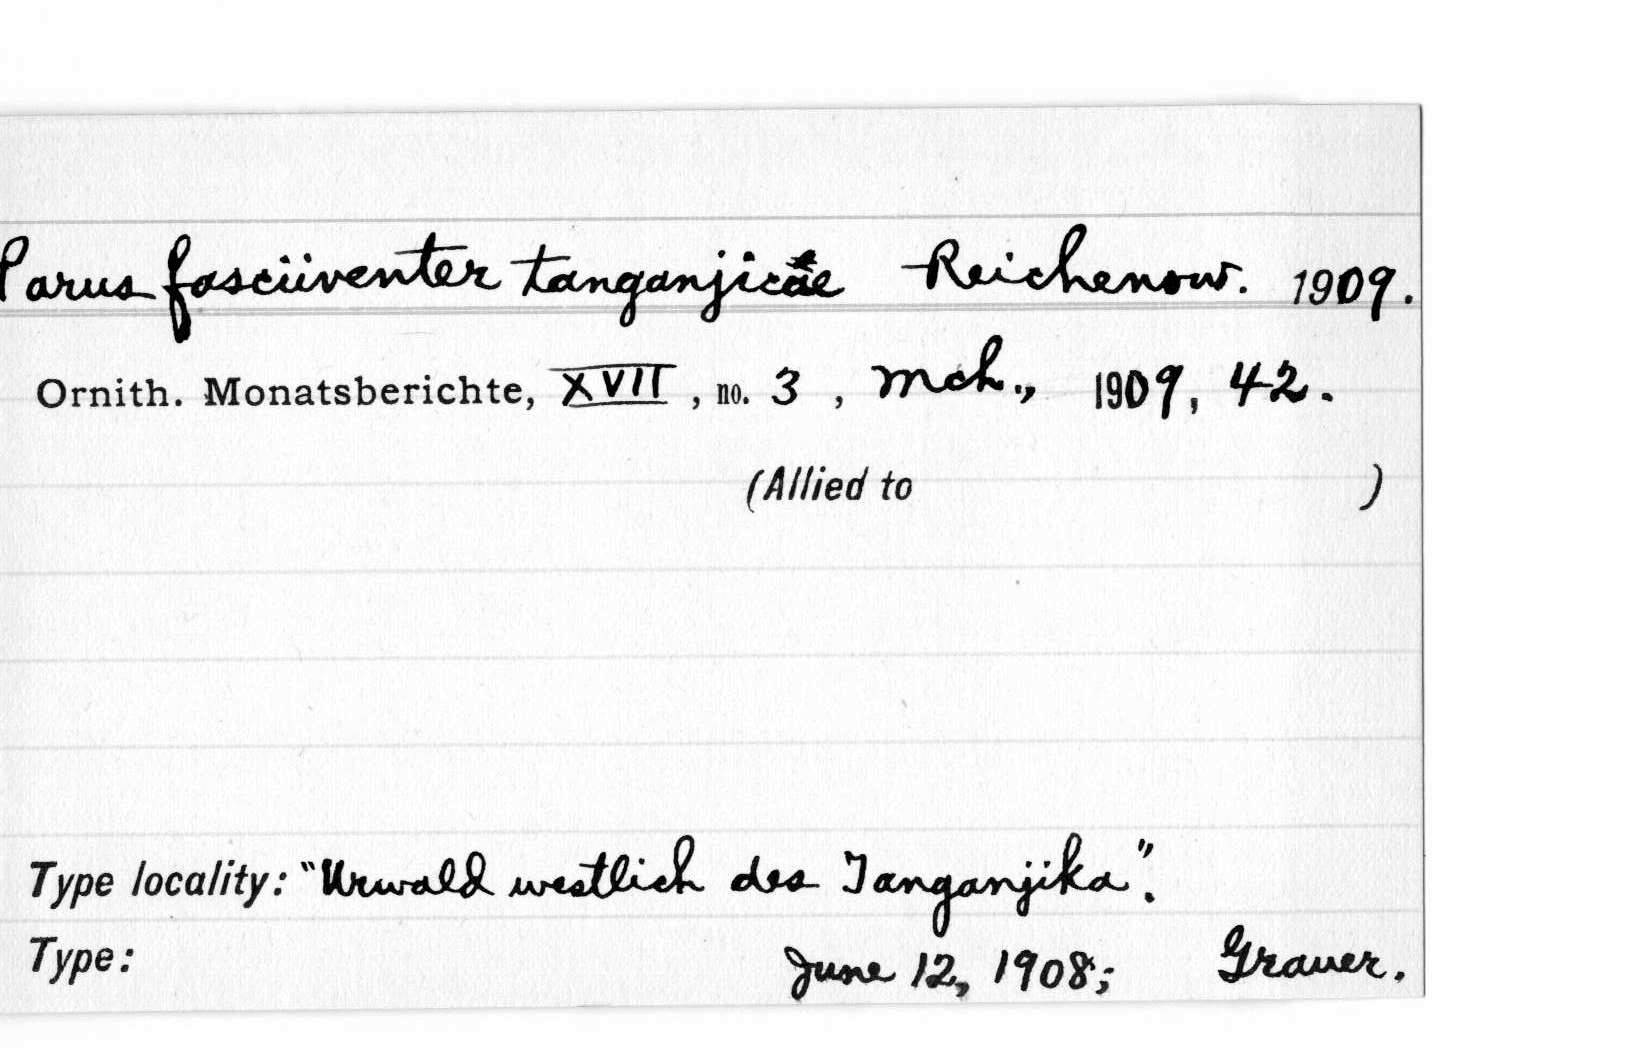 Parus fasciiventer tanganjicae Reichenow. 1909.
Ornith. Monatsberichte, XVII, no. 3, Mch., 1909, 42.
(Allied to )
Type locality: "Urwald westlich des Tanganjika".
Type: June 12, 1908; Grauer.